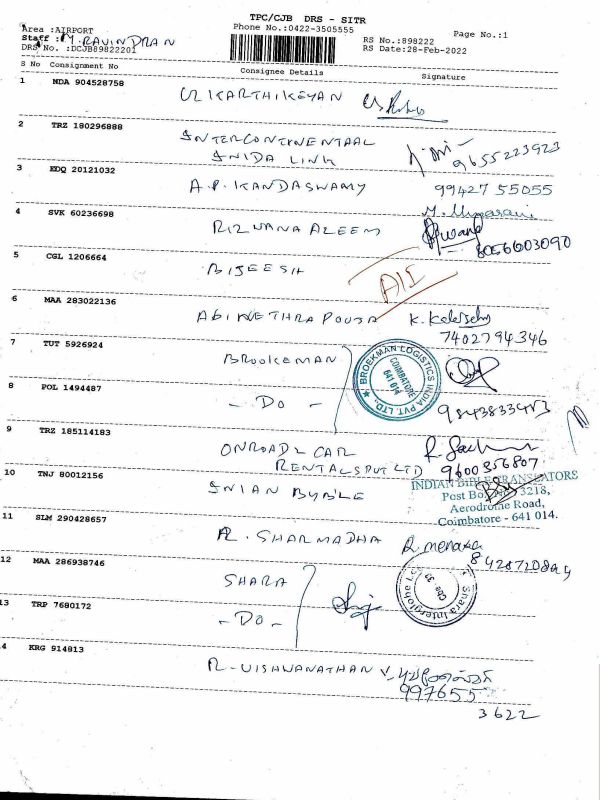 TPC/CJB DRS - SITR
Phone No.:0422-3505555
Area :AIRPORT
Staff : M. RAVINDRAN
DRS No. :DCJB89822201
RS No.:898222
RS Date:28-Feb-2022
Page No.:1
S No Consignment No Consignee Details Signature
1 NDA 904528758 KARTHIKEYAN
2 TRZ 180296888 INTERCONTINENTAAL
LINK 9655223923
3 EDQ 20121032 A.P. KANDASWAMY 99427 55055
4 SVK 60236698 RIZWANA AZEEM 8056603090
5 CGL 1206664 BIJEESH
6 MAA 283022136 ABINETHRA POOJA K.
7402794346
7 TUT 5926924 BROOKEMAN
BROEKMAN LOGISTICS INDIA PVT. LTD.
COIMBATORE 641 014
8 POL 1494487 - DO -
9 TRZ 185114183 ONROADZ CAR
RENTALS PVT LTD 9600356807
10 TNJ 80012156 INIAN BYBLE
INDIAN BIBLE TRANSLATORS
Post Box No. 3218,
Aerodrome Road,
Coimbatore - 641 014.
11 SLM 290428657 R. SHARMADHA R. menaka
12 MAA 286938746 SHARA
13 TRP 7680172 - DO -
14 KRG 914813 R. VISHWANATHAN
997655
3622